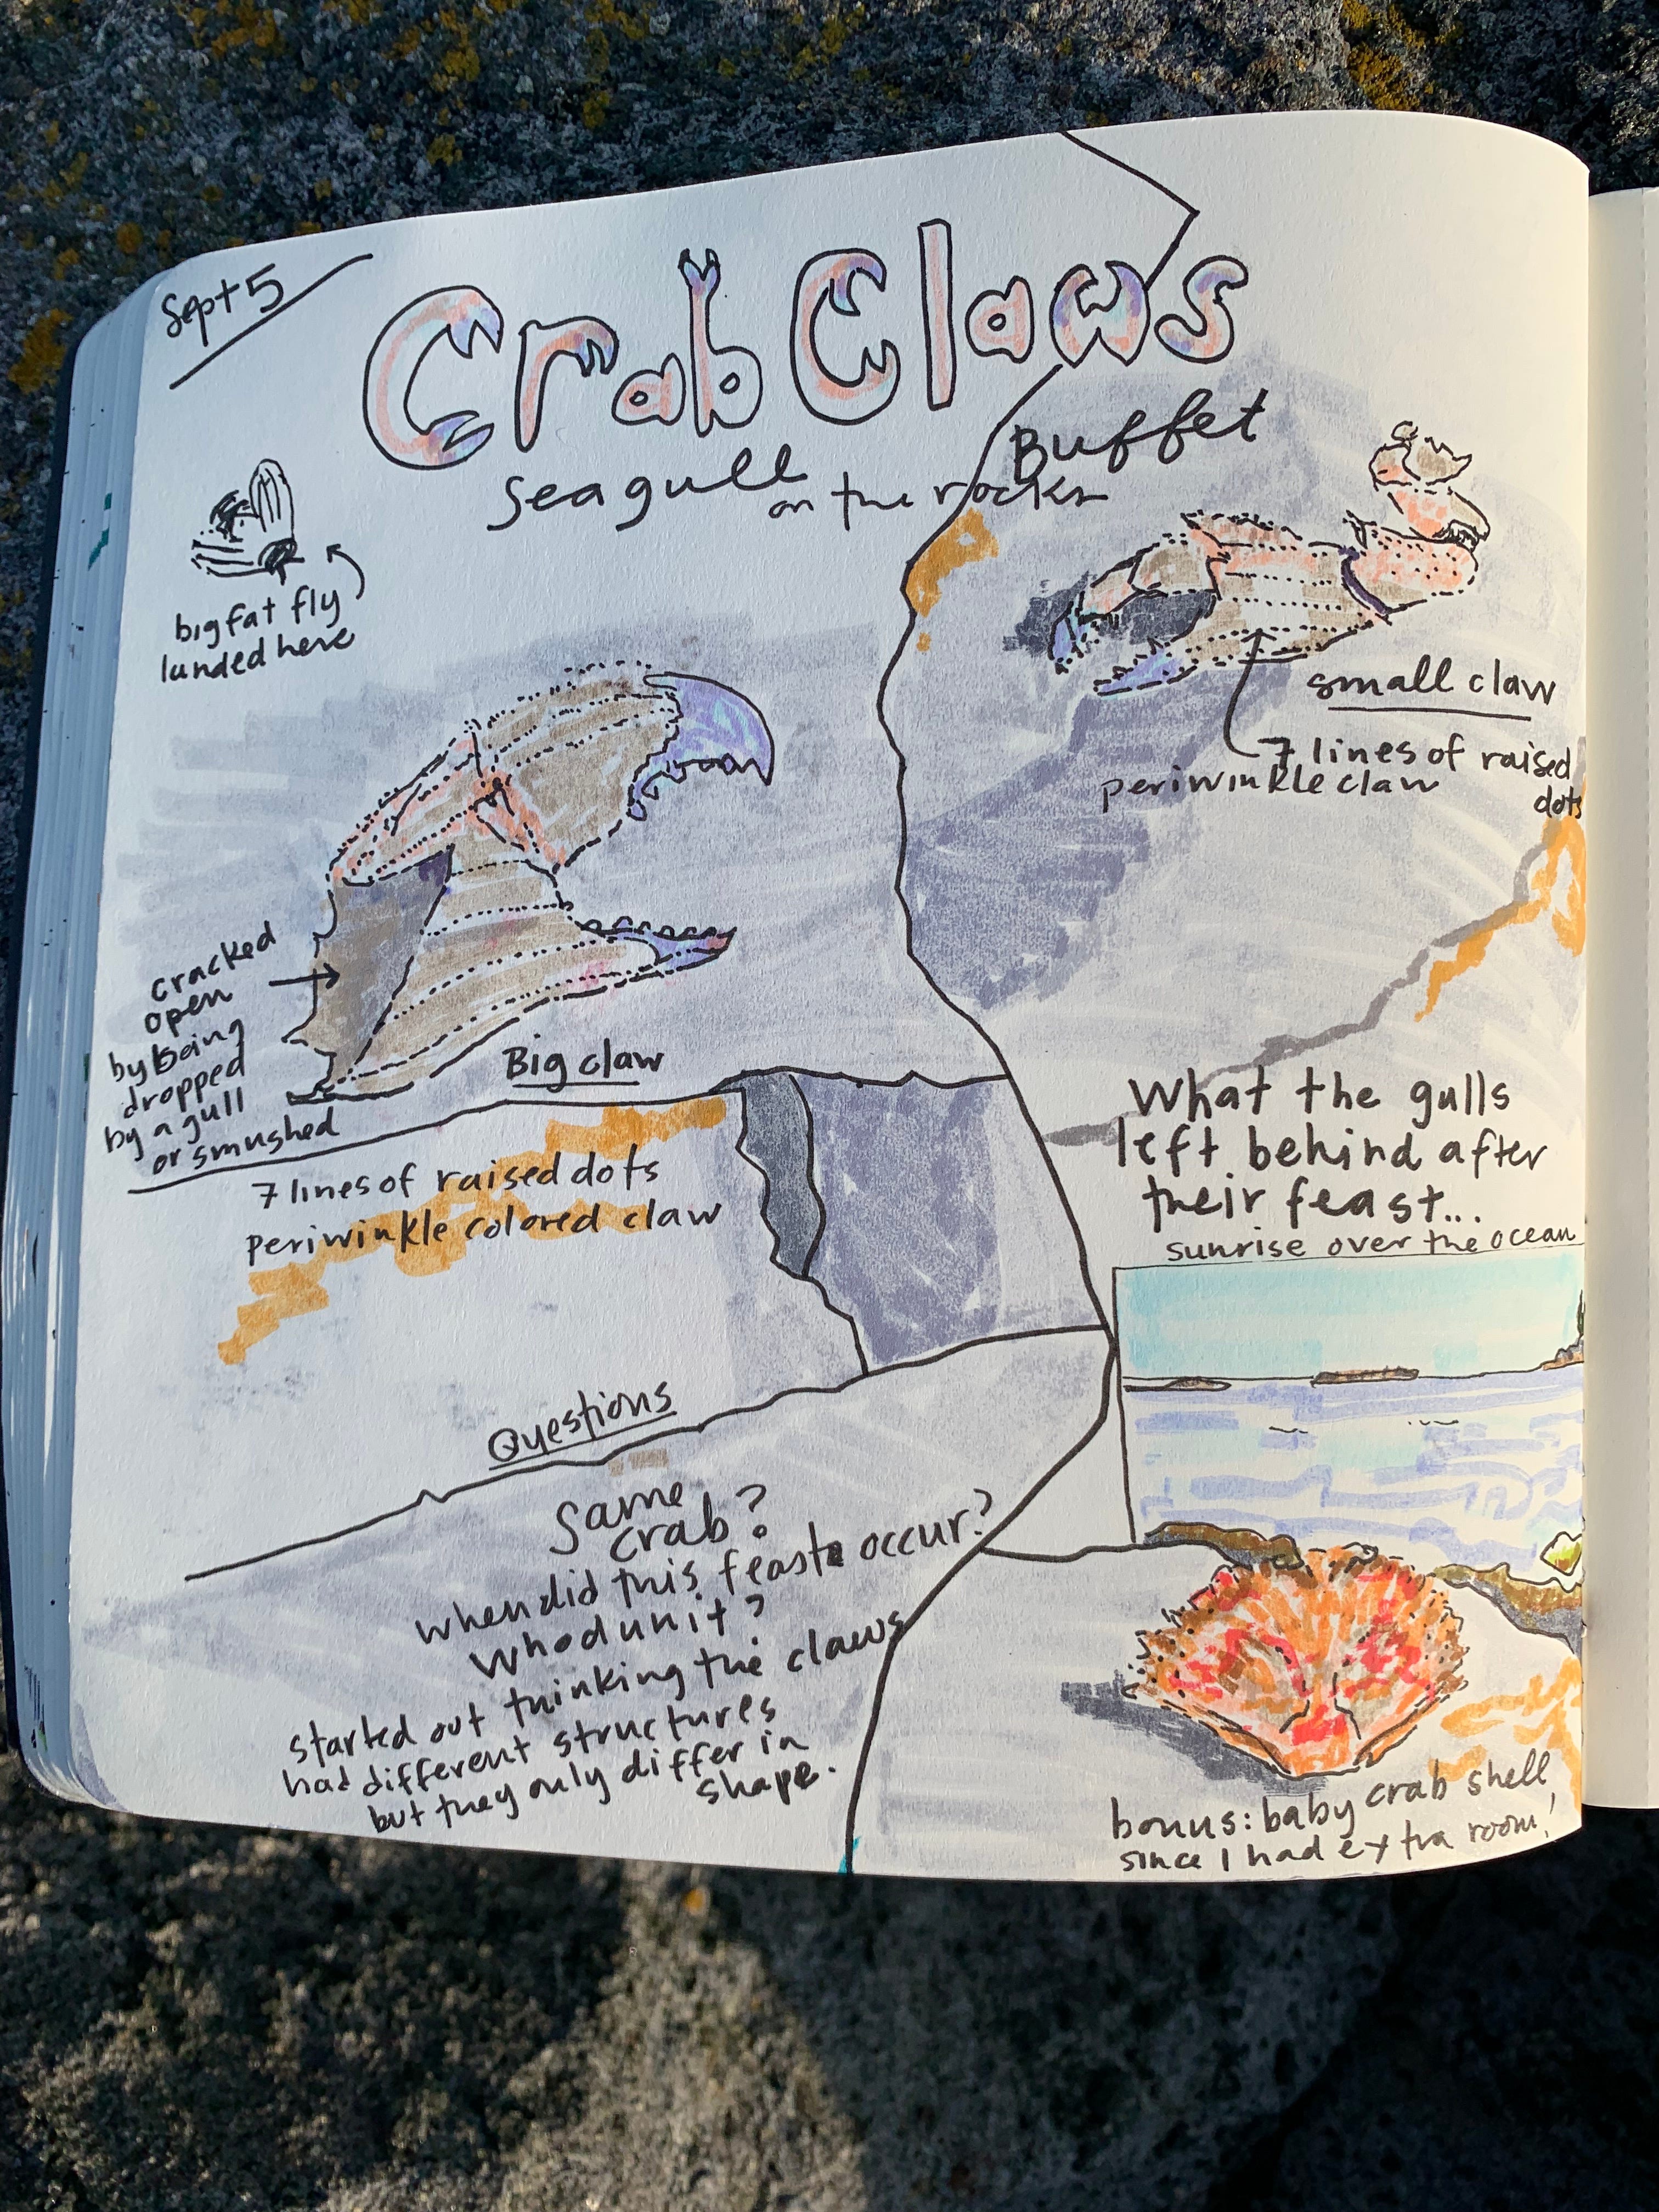 Sept 5
Crab Claws
Seagull Buffet
on the rocks
big fat fly
landed here
small claw
7 lines of raised
dots
periwinkle claw
cracked
open
by being
dropped
by a gull
or smushed
Big claw
7 lines of raised dots
periwinkle colored claw
What the gulls
left behind after
their feast...
sunrise over the ocean
Questions
Same
crab?
when did this feast occur?
Whodunit?
started out thinking the claws
had different structures
but they only differ in
shape.
bonus: baby crab shell
since I had extra room!